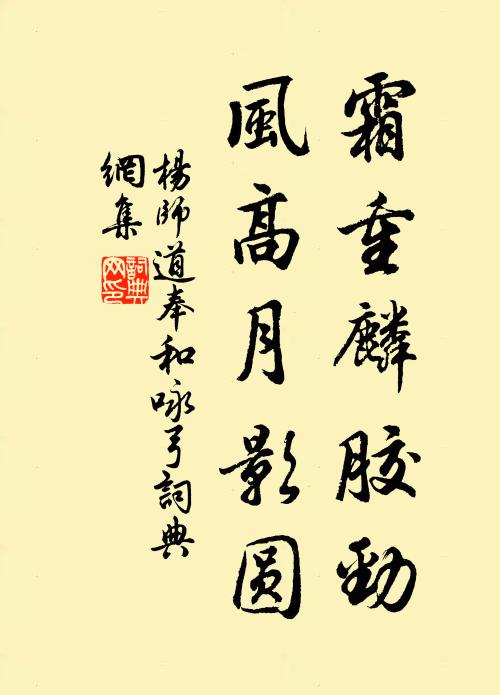 霜重麟胶勁
風高月影圆
楊師道奉和咏弓詞典
網集
詞典
网印